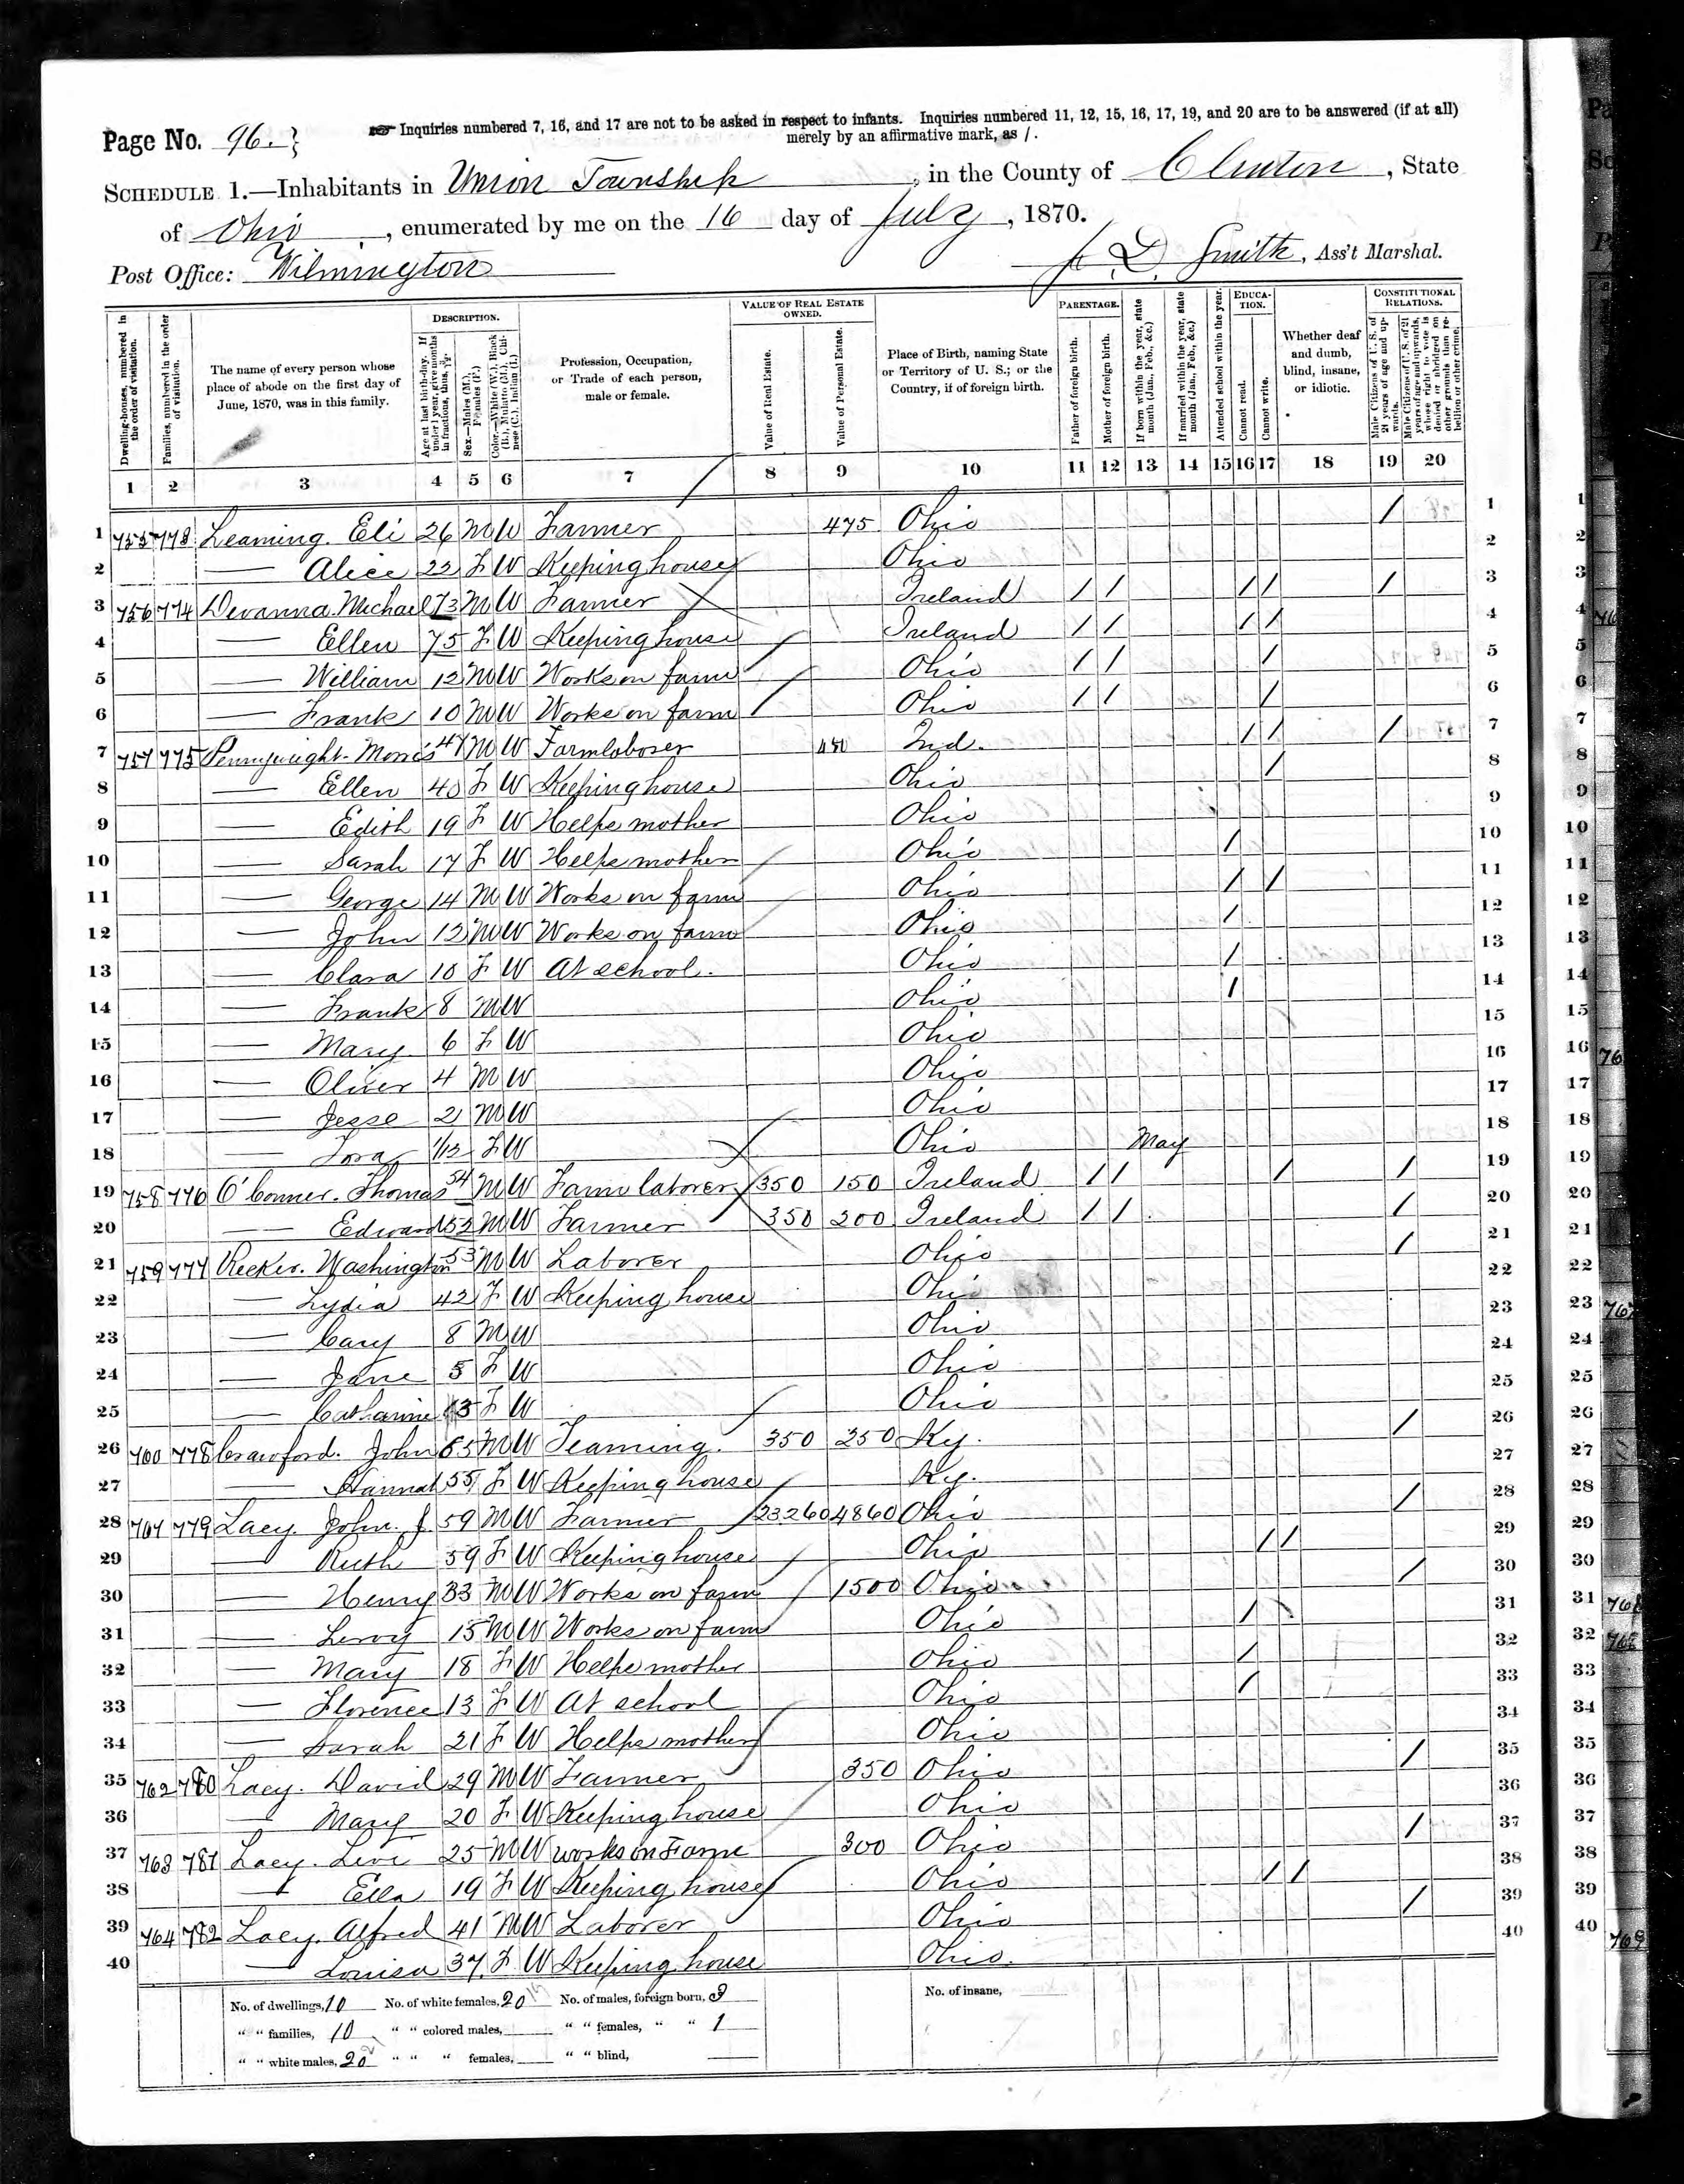 Page No. 96.
Inquiries numbered 7, 16, and 17 are not to be asked in respect to infants. Inquiries numbered 11, 12, 15, 16, 17, 19, and 20 are to be answered (if at all)
merely by an affirmative mark, as /.
SCHEDULE 1.—Inhabitants in Union Township, in the County of Clinton, State
of Ohio, enumerated by me on the 16 day of July, 1870.
Post Office: Wilmington
D. Smith, Ass't Marshal.
Dwelling-houses, numbered in the order of visitation.
Families, numbered in the order of visitation.
The name of every person whose place of abode on the first day of June, 1870, was in this family.
DESCRIPTION.
Age at last birth-day. If under 1 year, give months in fractions, thus,
Sex.—Males (M.), Females (F.)
Color.—White (W.), Black (B.), Mulatto (M.), Chinese (C.), Indian (I.)
Profession, Occupation, or Trade of each person, male or female.
VALUE OF REAL ESTATE OWNED.
Value of Real Estate.
Value of Personal Estate.
Place of Birth, naming State or Territory of U. S.; or the Country, if of foreign birth.
PARENTAGE.
Father of foreign birth.
Mother of foreign birth.
If born within the year, state month (Jan., Feb., &c.)
If married within the year, state month (Jan., Feb., &c.)
Attended school within the year.
EDUCATION.
Cannot read.
Cannot write.
Whether deaf and dumb, blind, insane, or idiotic.
CONSTITUTIONAL RELATIONS.
Male Citizens of U. S. of 21 years of age and upwards.
Male Citizens of U. S. of 21 years of age and upwards, whose right to vote is denied or abridged on other grounds than rebellion or other crime.
1 2 3 4 5 6 7 8 9 10 11 12 13 14 15 16 17 18 19 20
1 755 773 Leaming. Eli 26 M W Farmer 475 Ohio / 1
2 — Alice 22 F W Keeping house Ohio 2
3 756 774 Devanna. Michael 73 M W Farmer Ireland / / / / / 3
4 — Ellen 75 F W Keeping house Ireland / / / / 4
5 — William 12 M W Works on farm Ohio / / / 5
6 — Frank 10 M W Works on farm Ohio / / / 6
7 757 775 Pennywight. Morris 47 M W Farm laborer Ind. / / / 7
8 — Ellen 40 F W Keeping house Ohio / 8
9 — Edith 19 F W Helps mother Ohio 9
10 — Sarah 17 F W Helps mother Ohio / 10
11 — George 14 M W Works on farm Ohio / / 11
12 — John 12 M W Works on farm Ohio / 12
13 — Clara 10 F W At school. Ohio / 13
14 — Frank 8 M W Ohio / 14
15 — Mary 6 F W Ohio 15
16 — Oliver 4 M W Ohio 16
17 — Jesse 2 M W Ohio 17
18 — 1/12 F W Ohio May 18
19 758 776 O'Conner. Thomas 54 M W Farm laborer 350 150 Ireland / / / / 19
20 — Edward 52 M W Farmer 350 200 Ireland / / / 20
21 759 777 Washington 53 M W Laborer Ohio / 21
22 — Lydia 42 F W Keeping house Ohio 22
23 — Cary 8 M W Ohio 23
24 — Jane 5 F W Ohio 24
25 — Catharine 3 F W Ohio 25
26 760 778 Crawford. John 65 M W Teaming. 350 250 Ky. / 26
27 — Hannah 55 F W Keeping house Ky. 27
28 761 779 Lacy. John. J. 59 M W Farmer 23260 4860 Ohio / 28
29 — Ruth 59 F W Keeping house Ohio / / 29
30 — Henry 33 M W Works on farm 1500 Ohio / 30
31 — Leroy 15 M W Works on farm Ohio / 31
32 — Mary 18 F W Helps mother Ohio / 32
33 — Florence 13 F W At school Ohio / 33
34 — Sarah 21 F W Helps mother Ohio 34
35 762 780 Lacy. David 29 M W Farmer 350 Ohio / 35
36 — Mary 20 F W Keeping house Ohio 36
37 763 781 Lacy. Levi 25 M W works on Farm 300 Ohio / 37
38 — Ella 19 F W Keeping house Ohio / / 38
39 764 782 Lacy. Alfred 41 M W Laborer Ohio / 39
40 — Louisa 37 F W Keeping house Ohio. 40
No. of dwellings, 10 No. of white females, 20 No. of males, foreign born, 3 No. of insane,
" " families, 10 " " colored males, " " females, " " 1
" " white males, 20 " " " females, " " blind,